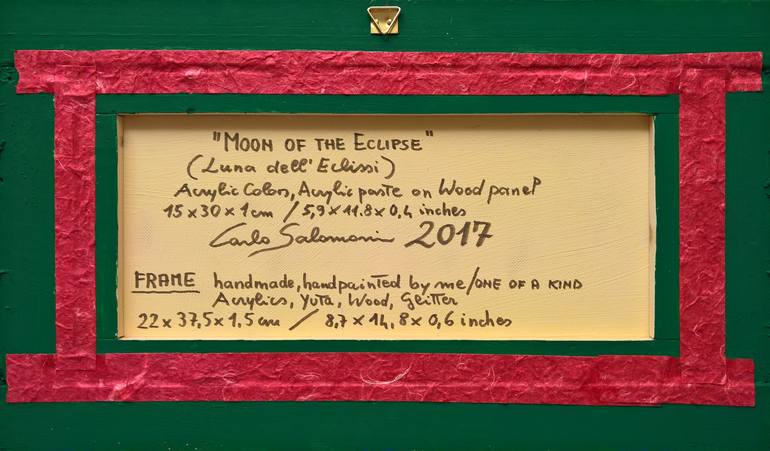 "MOON OF THE ECLIPSE"
(Luna dell'Eclissi)
Acrylic Colors, Acrylic paste on Wood panel
15 x 30 x 1 cm / 5,9 x 11.8 x 0,4 inches
Carlo Salomoni 2017
FRAME handmade, handpainted by me/ONE OF A KIND
Acrylics, Yuta, Wood, Glitter
22 x 37,5 x 1,5 cm / 8,7 x 14,8 x 0,6 inches